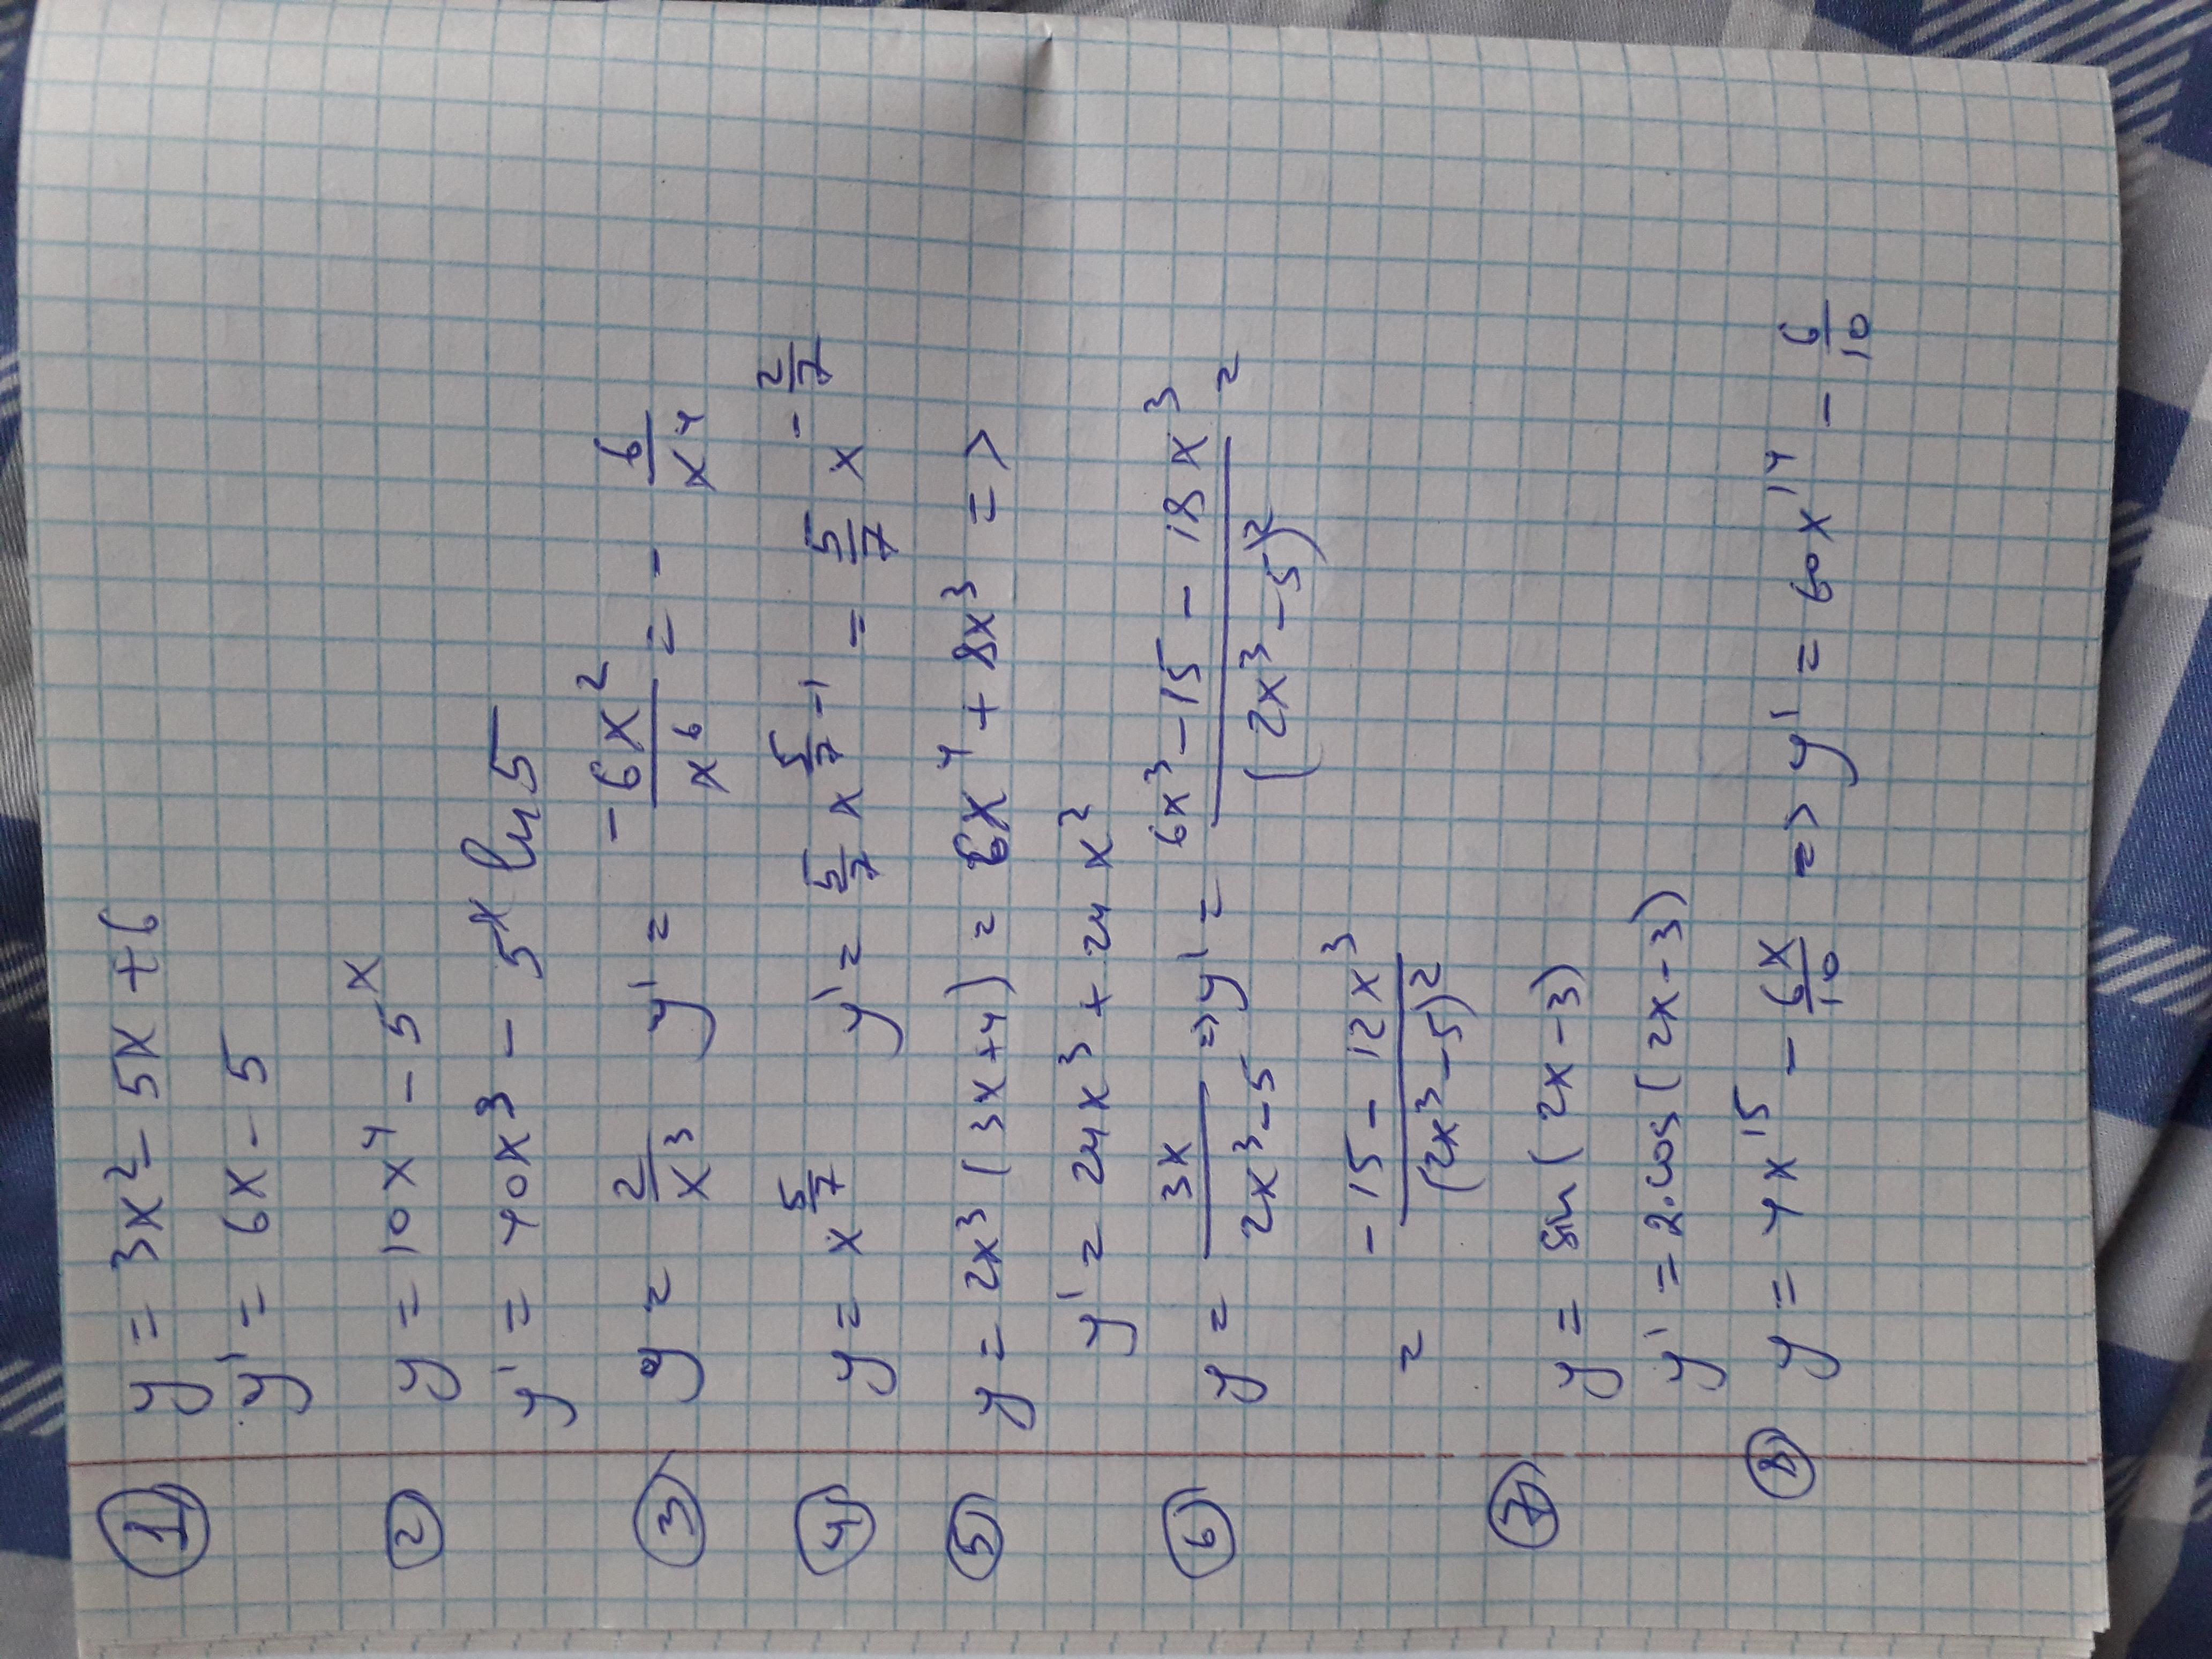 ① y = 3x² - 5x + 6
y' = 6x - 5
② y = 10x⁴ - 5ˣ
y' = 40x³ - 5ˣ ln5
③ y = 2/x³ y' = -6x²/x⁶ = - 6/x⁴
④ y = x^(5/7) y' = 5/7 x^(5/7 - 1) = 5/7 x^(-2/7)
⑤ y = 2x³(3x+4) = 6x⁴ + 8x³ =>
y' = 24x³ + 24x²
⑥ y = 3x/(2x³-5) => y' = (6x³ - 15 - 18x³)/(2x³-5)² =
= (-15 - 12x³)/(2x³-5)²
⑦ y = sin(2x-3)
y' = 2·cos(2x-3)
⑧ y = 4x¹⁵ - 6x/10 => y' = 60x¹⁴ - 6/10